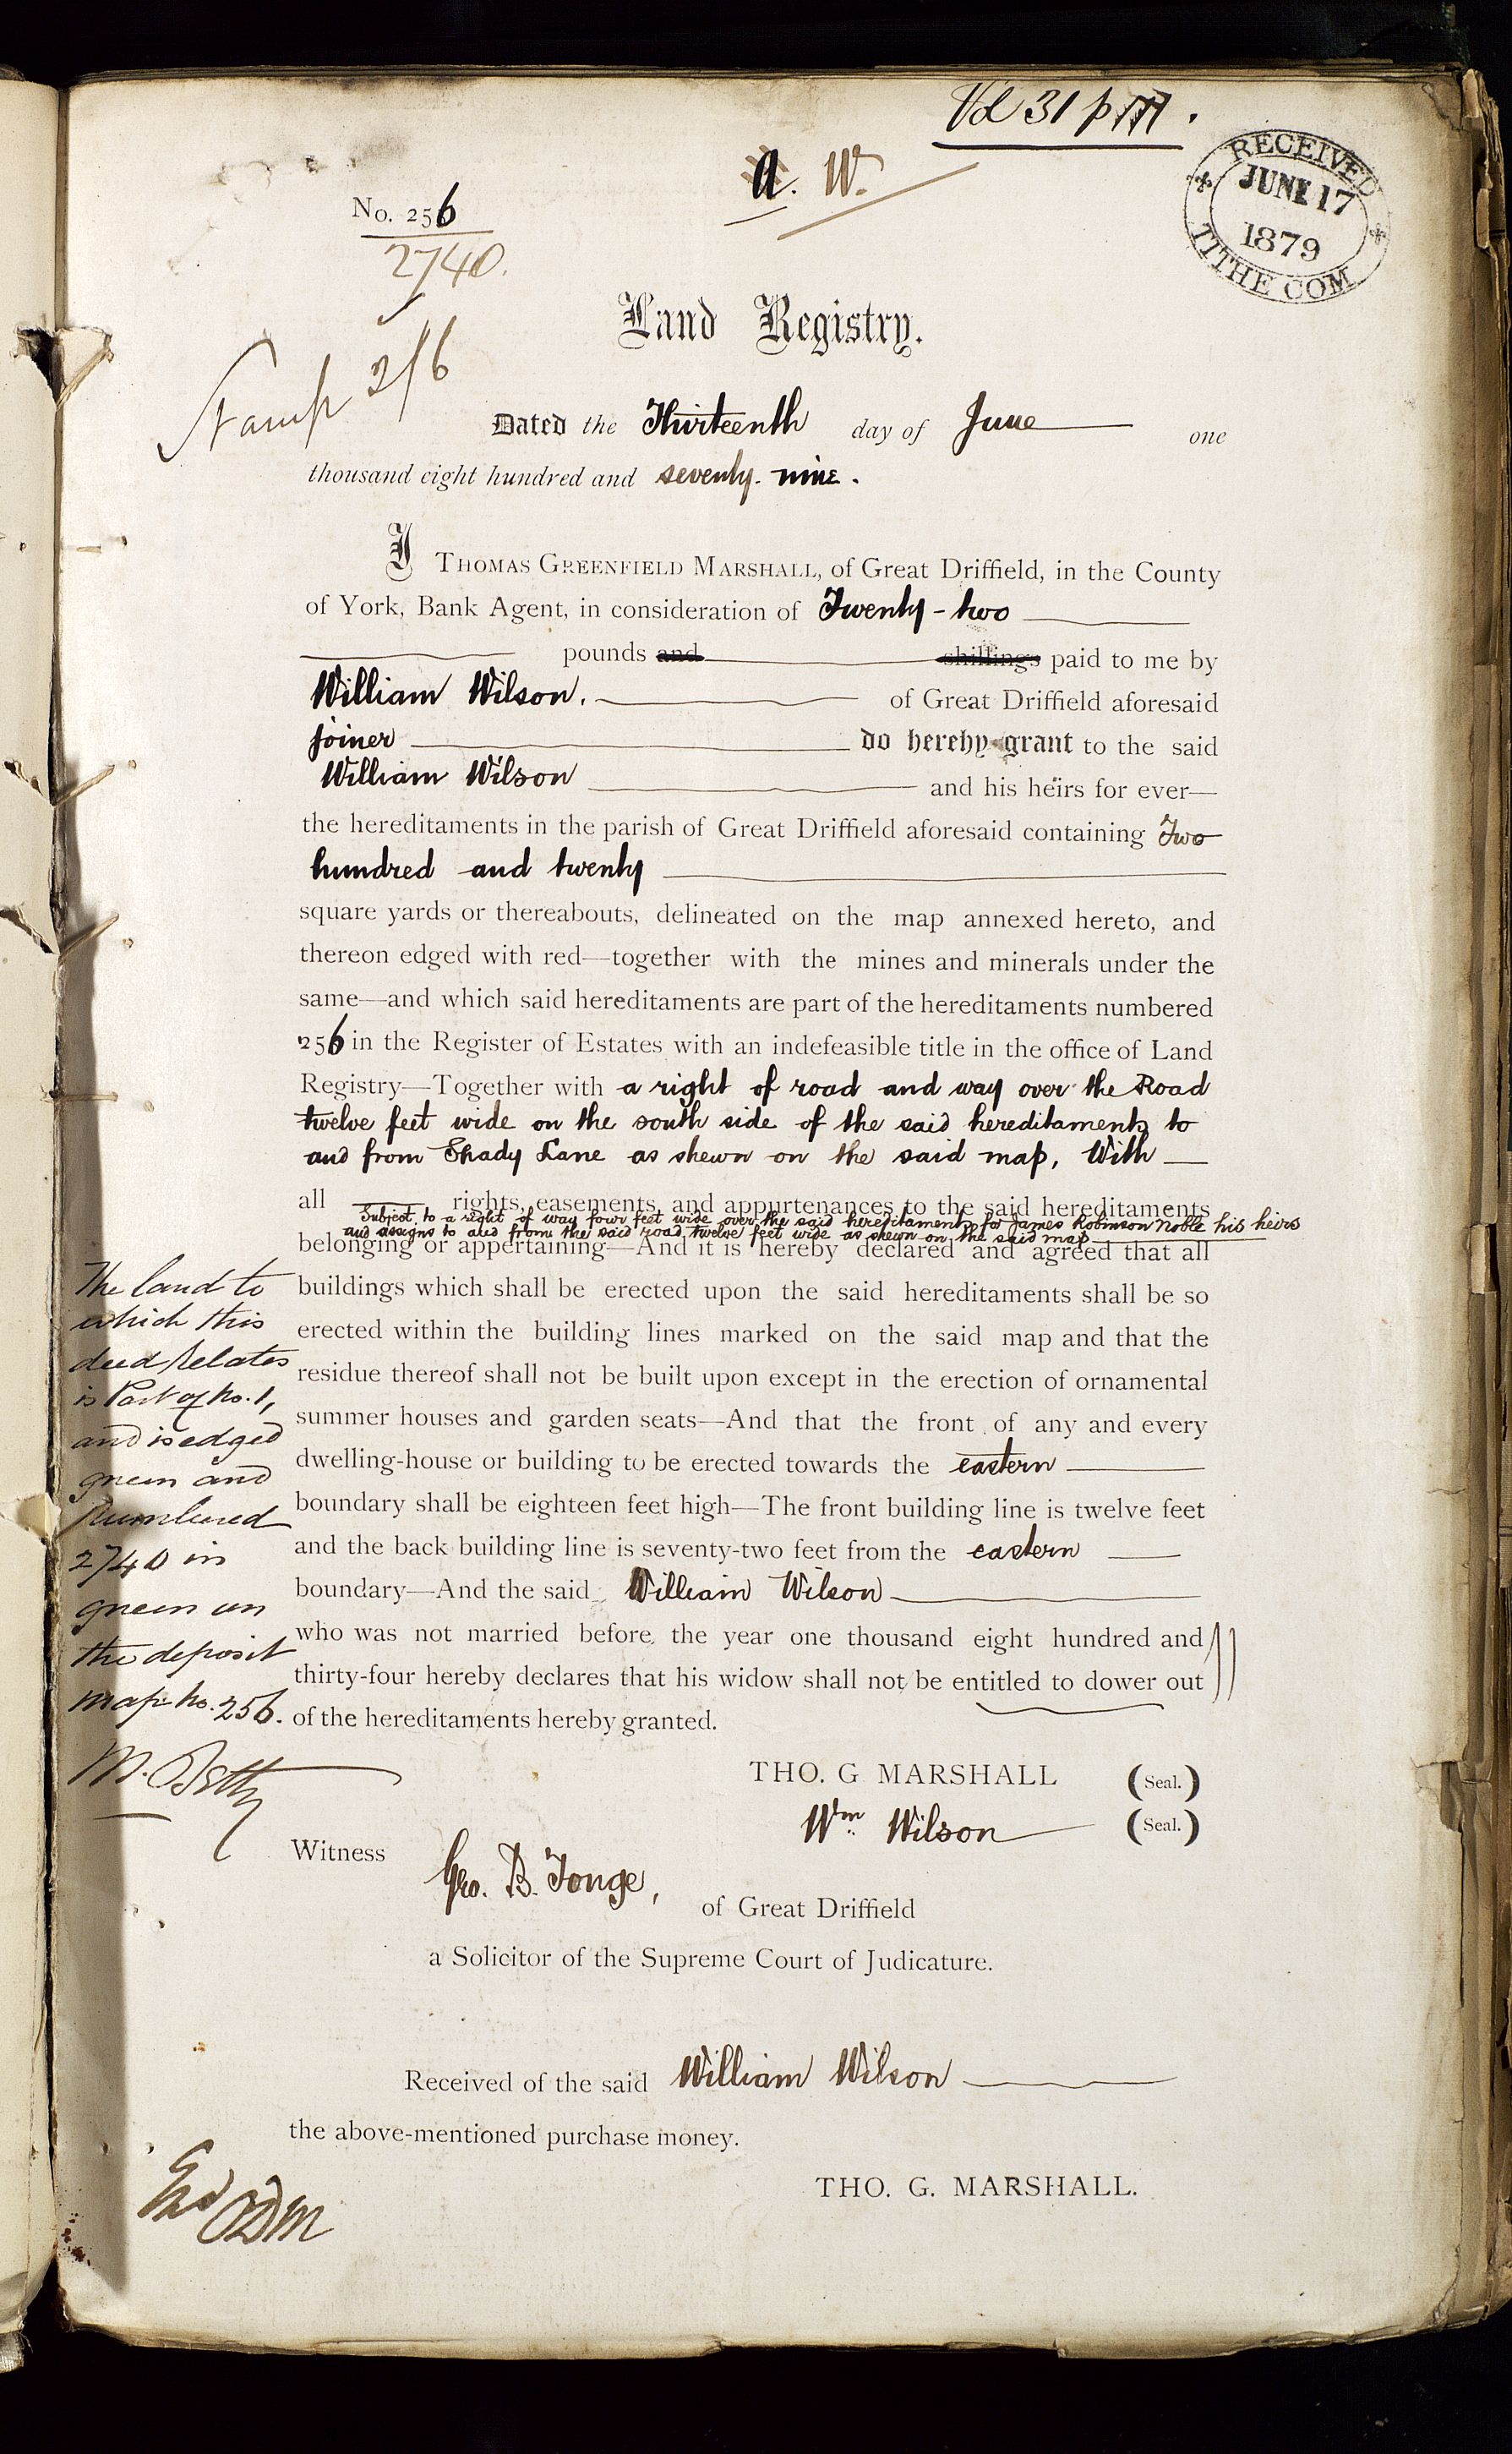 Vol 31 p
A. W.
RECEIVED
JUNE 17
1879
TITHE COM
No. 256
2740.
Land Registry.
Stamp 2/6
Dated the Thirteenth day of June one
thousand eight hundred and seventy-nine.
I THOMAS GREENFIELD MARSHALL, of Great Driffield, in the County
of York, Bank Agent, in consideration of Twenty-two
pounds and shillings paid to me by
William Wilson. of Great Driffield aforesaid
joiner do hereby grant to the said
William Wilson and his heirs for ever—
the hereditaments in the parish of Great Driffield aforesaid containing Two
hundred and twenty
square yards or thereabouts, delineated on the map annexed hereto, and
thereon edged with red—together with the mines and minerals under the
same—and which said hereditaments are part of the hereditaments numbered
256 in the Register of Estates with an indefeasible title in the office of Land
Registry—Together with a right of road and way over the Road
twelve feet wide on the south side of the said hereditaments to
and from Shady Lane as shewn on the said map, With
all rights, easements, and appurtenances to the said hereditaments
Subject to a right of way four feet wide over the said hereditaments for James Robinson Noble his heirs
and assigns to and from the said road twelve feet wide as shewn on the said map
belonging or appertaining—And it is hereby declared and agreed that all
buildings which shall be erected upon the said hereditaments shall be so
erected within the building lines marked on the said map and that the
residue thereof shall not be built upon except in the erection of ornamental
summer houses and garden seats—And that the front of any and every
dwelling-house or building to be erected towards the eastern
boundary shall be eighteen feet high—The front building line is twelve feet
and the back building line is seventy-two feet from the eastern
boundary—And the said William Wilson
who was not married before the year one thousand eight hundred and
thirty-four hereby declares that his widow shall not be entitled to dower out
of the hereditaments hereby granted.
The land to
which this
deed relates
is Part of No. 1,
and is edged
green and
numbered
2740 in
green on
the deposit
map No. 256.
THO. G MARSHALL (Seal.)
Wm. Wilson (Seal.)
Witness
Geo. B. Tonge,
of Great Driffield
a Solicitor of the Supreme Court of Judicature.
Received of the said William Wilson
the above-mentioned purchase money.
THO. G. MARSHALL.